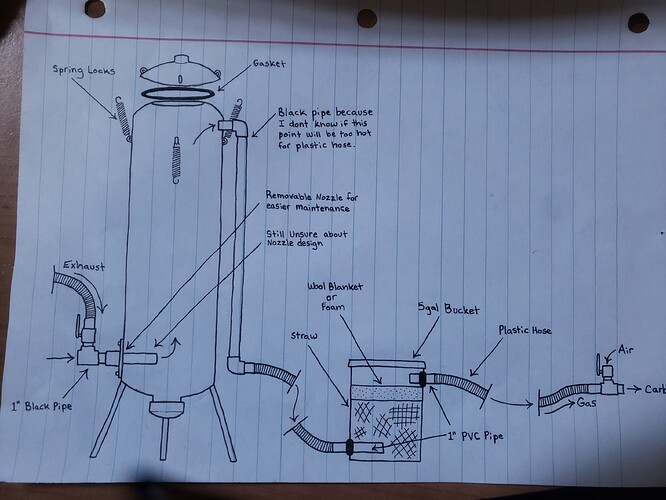 Spring Locks
Gasket
Black pipe because
I dont know if this
point will be too hot
for plastic hose.
Removable Nozzle for
easier maintenance
Still Unsure about
Nozzle design
Exhaust
Wool Blanket
or
Foam
5gal Bucket
Straw
Plastic Hose
Air
1" Black Pipe
Gas
Carb
1" PVC Pipe